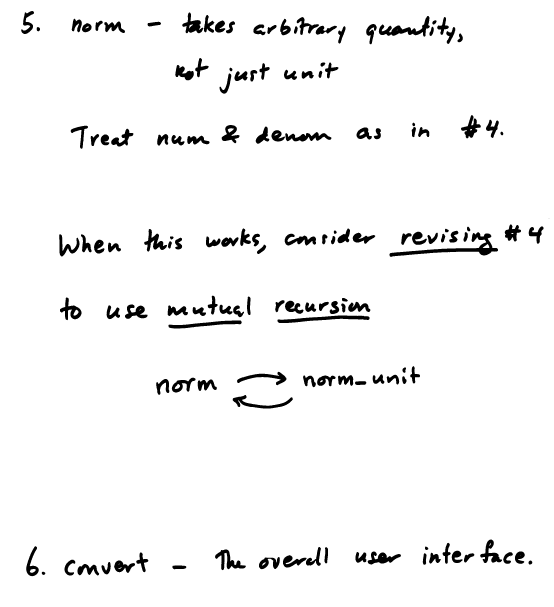 5. norm - takes arbitrary quantity,
not just unit
Treat num & denom as in #4.
When this works, consider revising #4
to use mutual recursion
norm norm_unit
6. convert - The overall user interface.